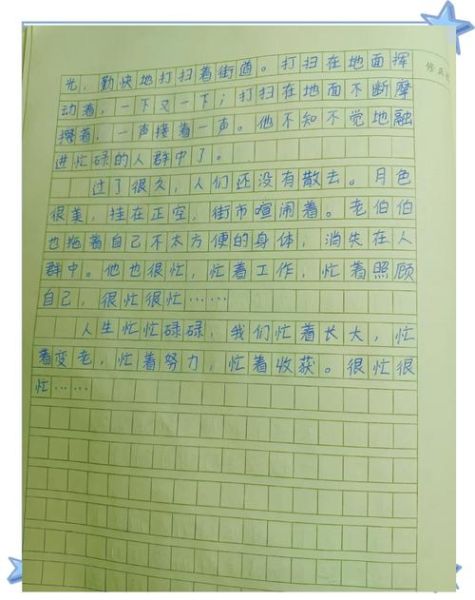 光，勤快地打扫着街道。打扫在地面挥
动着，一下又一下；打扫在地面不断摩
擦着，一声接着一声。他不知不觉地融
进忙碌的人群中了。
过了很久，人们还没有散去。月色
很美，挂在正空，街市喧闹着。老伯伯
也拖着自己不太方便的身体，消失在人
群中。他也很忙，忙着工作，忙着照顾
自己，很忙很忙……
人生忙忙碌碌，我们忙着长大，忙
着变老，忙着努力，忙着收获。很忙很
忙……